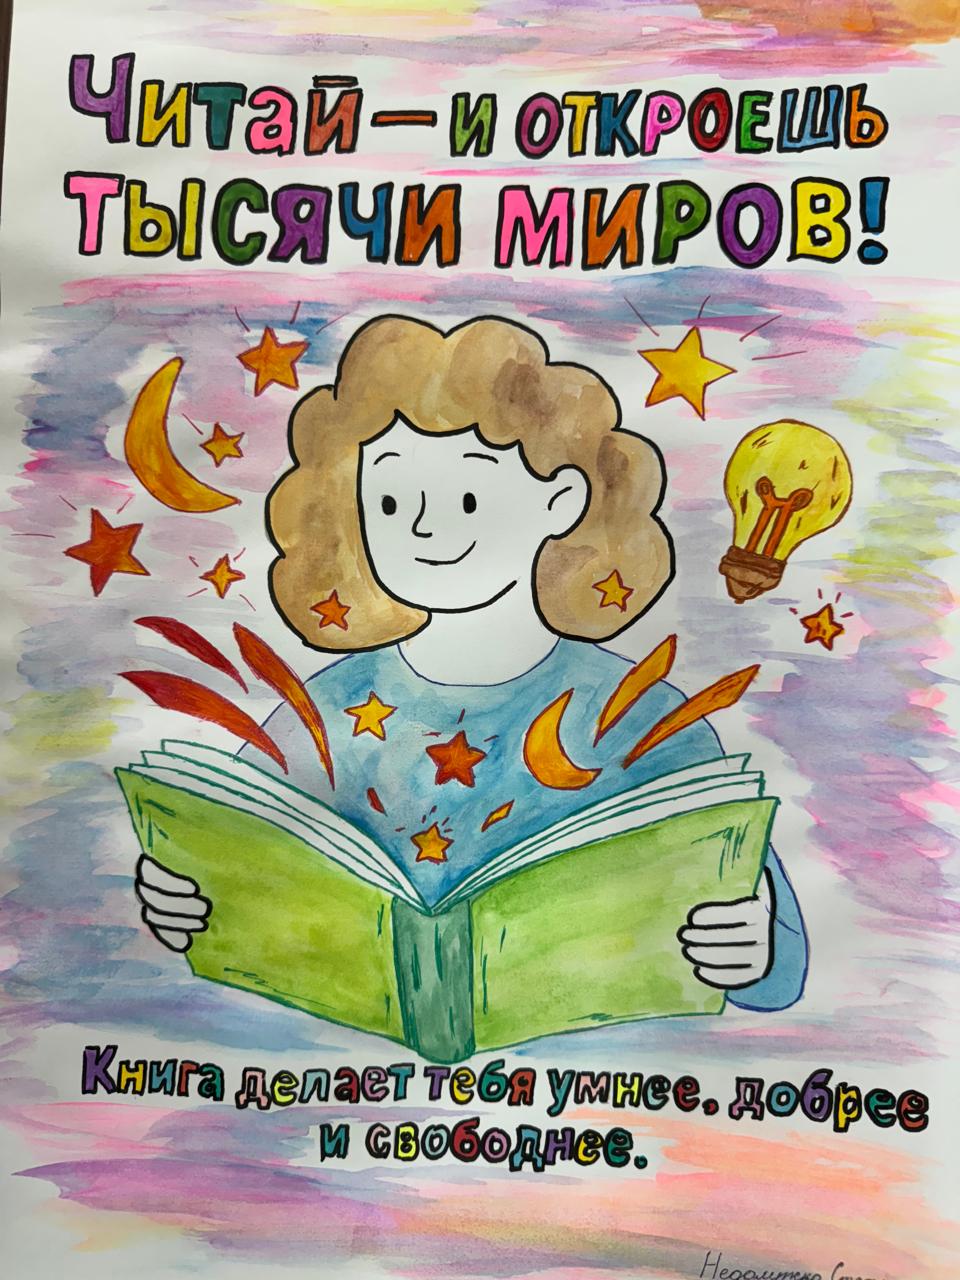 Читай — и откроешь
тысячи миров!
Книга делает тебя умнее. добрее
и свободнее.